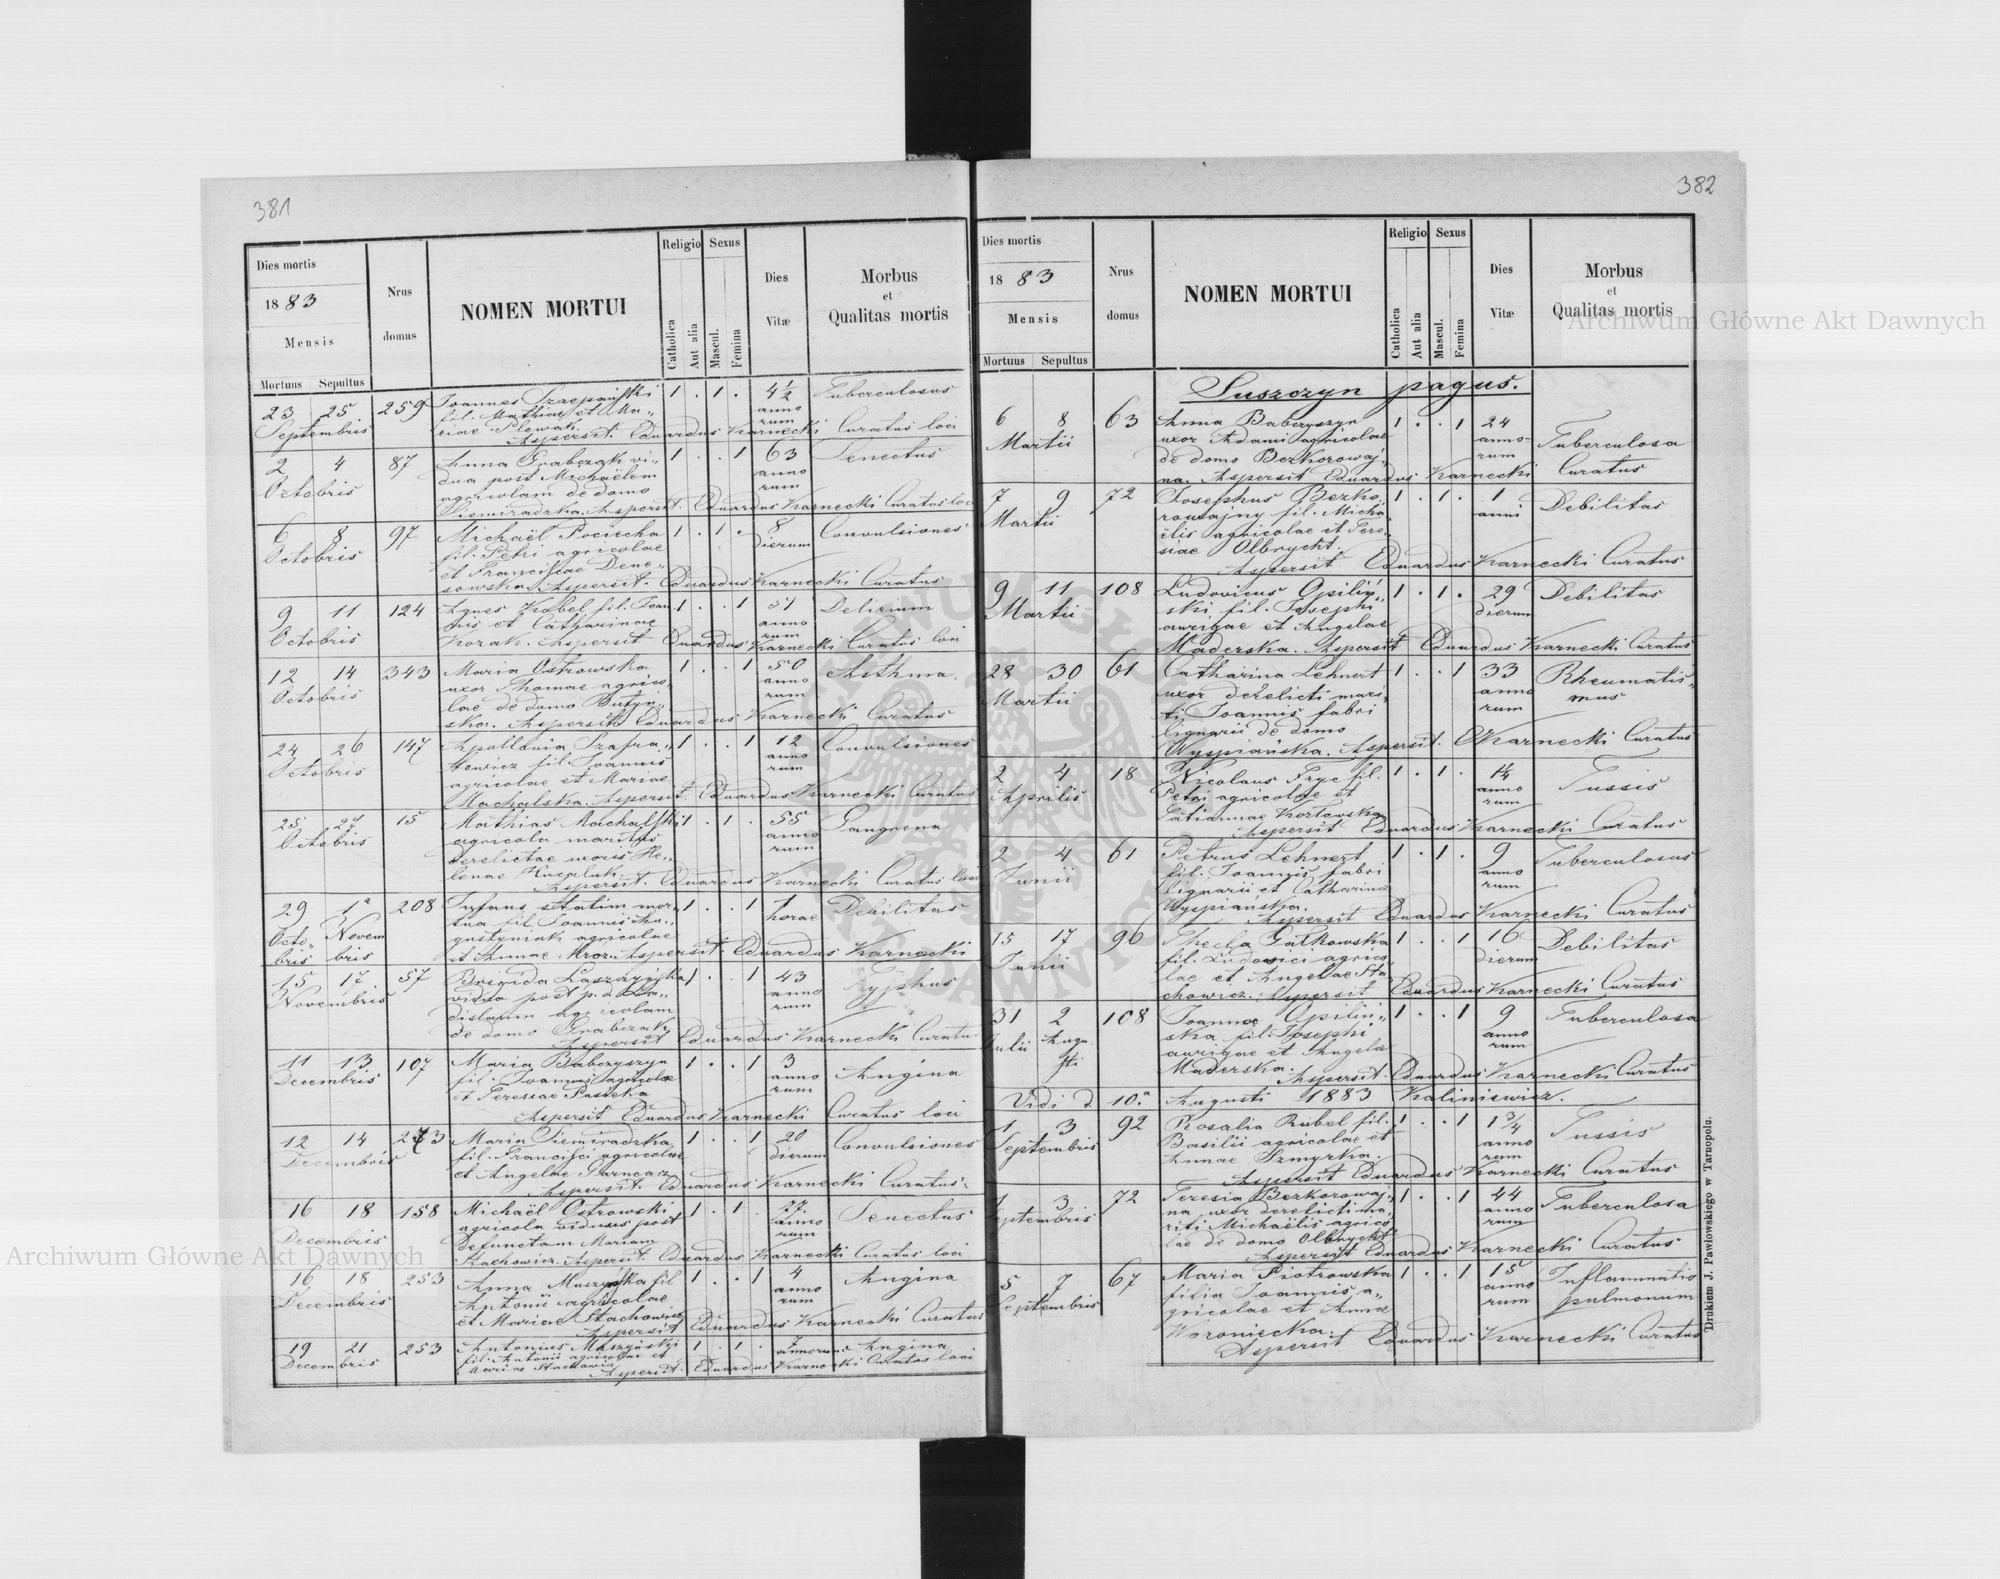 381
Dies mortis
1883
Mensis
Mortuus Sepultus
Nrus domus
NOMEN MORTUI
Religio
Catholica
Aut alia
Sexus
Mascul.
Femina
Dies Vitæ
Morbus
et
Qualitas mortis
23 25 259 Joannes Szczepański 1 . 1 . 4½ Tuberculosus
Septembris fil. Mathiae et Ma- anno
ciae Plewak. rum
Aspersit. Eduardus Karnecki Curatus loci
2 4 87 Anna Grabczak vi- 1 . . 1 63 Senectus
Octobris dua post Michaëlem anno
agricolam de domo rum
Siemiradzka. Aspersit. Eduardus Karnecki Curatus loci
6 8 97 Michaël Pociecha 1 . 1 . 8 Convulsiones
Octobris fil. Petri agricolae dierum
et Franciscae Dene-
sowska. Aspersit. Eduardus Karnecki Curatus
9 11 124 Agnes Kobel fil. Joan 1 . . 1 51 Delirium
Octobris nis et Catharinae anno
Korak. Aspersit Eduardus Karnecki Curatus loci
rum
12 14 343 Maria Ostrowska 1 . . 1 50 Asthma.
Octobris uxor Thomae agrico- anno
lae de domo Butyń- rum
ska. Aspersit. Eduardus Karnecki Curatus
24 26 147 Apollonia Szafra- 1 . . 1 12 Convulsiones
Octobris newicz fil. Joannis anno
agricolae et Mariae rum
Machalska. Aspersit. Eduardus Karnecki Curatus
25 27 15 Mathias Machalski 1 . 1 . 55 Gangrena
Octobris agricola maritus anno
derelictae uxoris He- rum
lenae
Aspersit. Eduardus Karnecki Curatus loci
29 1a 208 Infans statim mor- 1 . . 1 1 Debilitas
Octo- Novem tua fil. Joannis Au- horae
bris bris gustyniak agricolae
et Annae Mroz. Aspersit. Eduardus Karnecki
15 17 57 Brigida Laszczyńska 1 . . 1 43 Typhus
Novembris vidua post p. d. La- anno
dislaum agricolam rum
de domo Grabczak
Aspersit Eduardus Karnecki Curatu
11 13 107 Maria Babczyszyn 1 . . 1 3 Angina
Decembris fil. Joannis agricolae anno
et Teresiae Pasieka rum
Aspersit Eduardus Karnecki Curatus loci
12 14 273 Maria Siemiradzka 1 . . 1 20 Convulsiones
Decembris fil. Francisci agricolae dierum
et Angelae Garncarz
Aspersit. Eduardus Karnecki Curatus.
16 18 158 Michaël Ostrowski 1 . 1 . 77 Senectus
Decembris agricola viduus post anno
defunctam Mariam rum
Stachowicz. Aspersit. Eduardus Karnecki Curatus loci
16 18 253 Anna Muszyńska fil 1 . . 1 4 Angina
Decembris Antonii agricolae anno
et Mariae Stachowicz rum
Aspersit Eduardus Karnecki Curatus
19 21 253 Antonius Muszyński 1 . 1 . 7 Angina
Decembris fil. Antonii agricolae et annorum
Mariae Stachowicz
Aspersit. Eduardus Karnecki Curatus loci
382
Dies mortis
1883
Mensis
Mortuus Sepultus
Nrus domus
NOMEN MORTUI
Religio
Catholica
Aut alia
Sexus
Mascul.
Femina
Dies Vitæ
Morbus
et
Qualitas mortis
Suszczyn pagus.
6 8 63 Anna Babczyszyn 1 . . 1 24 Tuberculosa
Martii uxor Adami agricolae anno-
de domo Bezkorowaj- rum
na. Aspersit Eduardus Karnecki Curatus
7 9 72 Josephus Bezko- 1 . 1 . 1 Debilitas
Martii rowajny fil. Micha- anni
ëlis agricolae et Tere-
siae Olbrycht.
Aspersit Eduardus Karnecki Curatus
9 11 108 Ludovicus Opiliń- 1 . 1 . 29 Debilitas
Martii ski fil. Josephi dierum
aurigae et Angelae
Maderska. Aspersit Eduardus Karnecki Curatus
28 30 61 Catharina Lehnert 1 . . 1 33 Rheumatis-
Martii uxor derelicti mari- anno mus
ti Joannis fabri rum
lignarii de domo
Wyspiańska. Aspersit. EKarnecki Curatus
2 4 18 Nicolaus Fryc fil. 1 . 1 . 1¼ Tussis
Aprilis Petri agricolae et anno
Tatiannae Kozłowska rum
Aspersit Eduardus Karnecki Curatus
2 4 61 Petrus Lehnert 1 . 1 . 9 Tuberculosus
Junii fil. Joannis fabri anno
lignarii et Catharinae rum
Wyspiańska.
Aspersit Eduardus Karnecki Curatus
15 17 96 Thecla Gałkowska 1 . . 1 16 Debilitas
Junii fil. Ludovici agrico- dierum
lae et Angelae Sta-
chowicz. Aspersit Eduardus Karnecki Curatus
31 2 108 Joanna Opiliń- 1 . . 1 9 Tuberculosa
Julii Augu- ska fil. Josephi anno
sti aurigae et Angelae rum
Maderska.
Aspersit. Eduardus Karnecki Curatus
Vidi d. 10. Augusti 1883 Kaliniewicz.
1 3 92 Rosalia Rubel fil. 1 . . 1 1¾ Tussis
Septembris Basilii agricolae et anno
Annae Szmyrka. rum
Aspersit Eduardus Karnecki Curatus
1 3 72 Teresia Bezkorowaj- 1 . . 1 44 Tuberculosa
Septembris na uxor derelicti ma- anno
riti Michaëlis agrico- rum
lae de domo Olbrycht
Aspersit Eduardus Karnecki Curatus
5 7 67 Maria Piotrowska 1 . . 1 15 Inflammatio
Septembris filia Joannis a- anno pulmonum
gricolae et Annae rum
Woroniecka.
Aspersit Eduardus Karnecki Curatus
Drukiem J. Pawłowskiego w Tarnopolu.
Archiwum Główne Akt Dawnych
Archiwum Główne Akt Dawnych